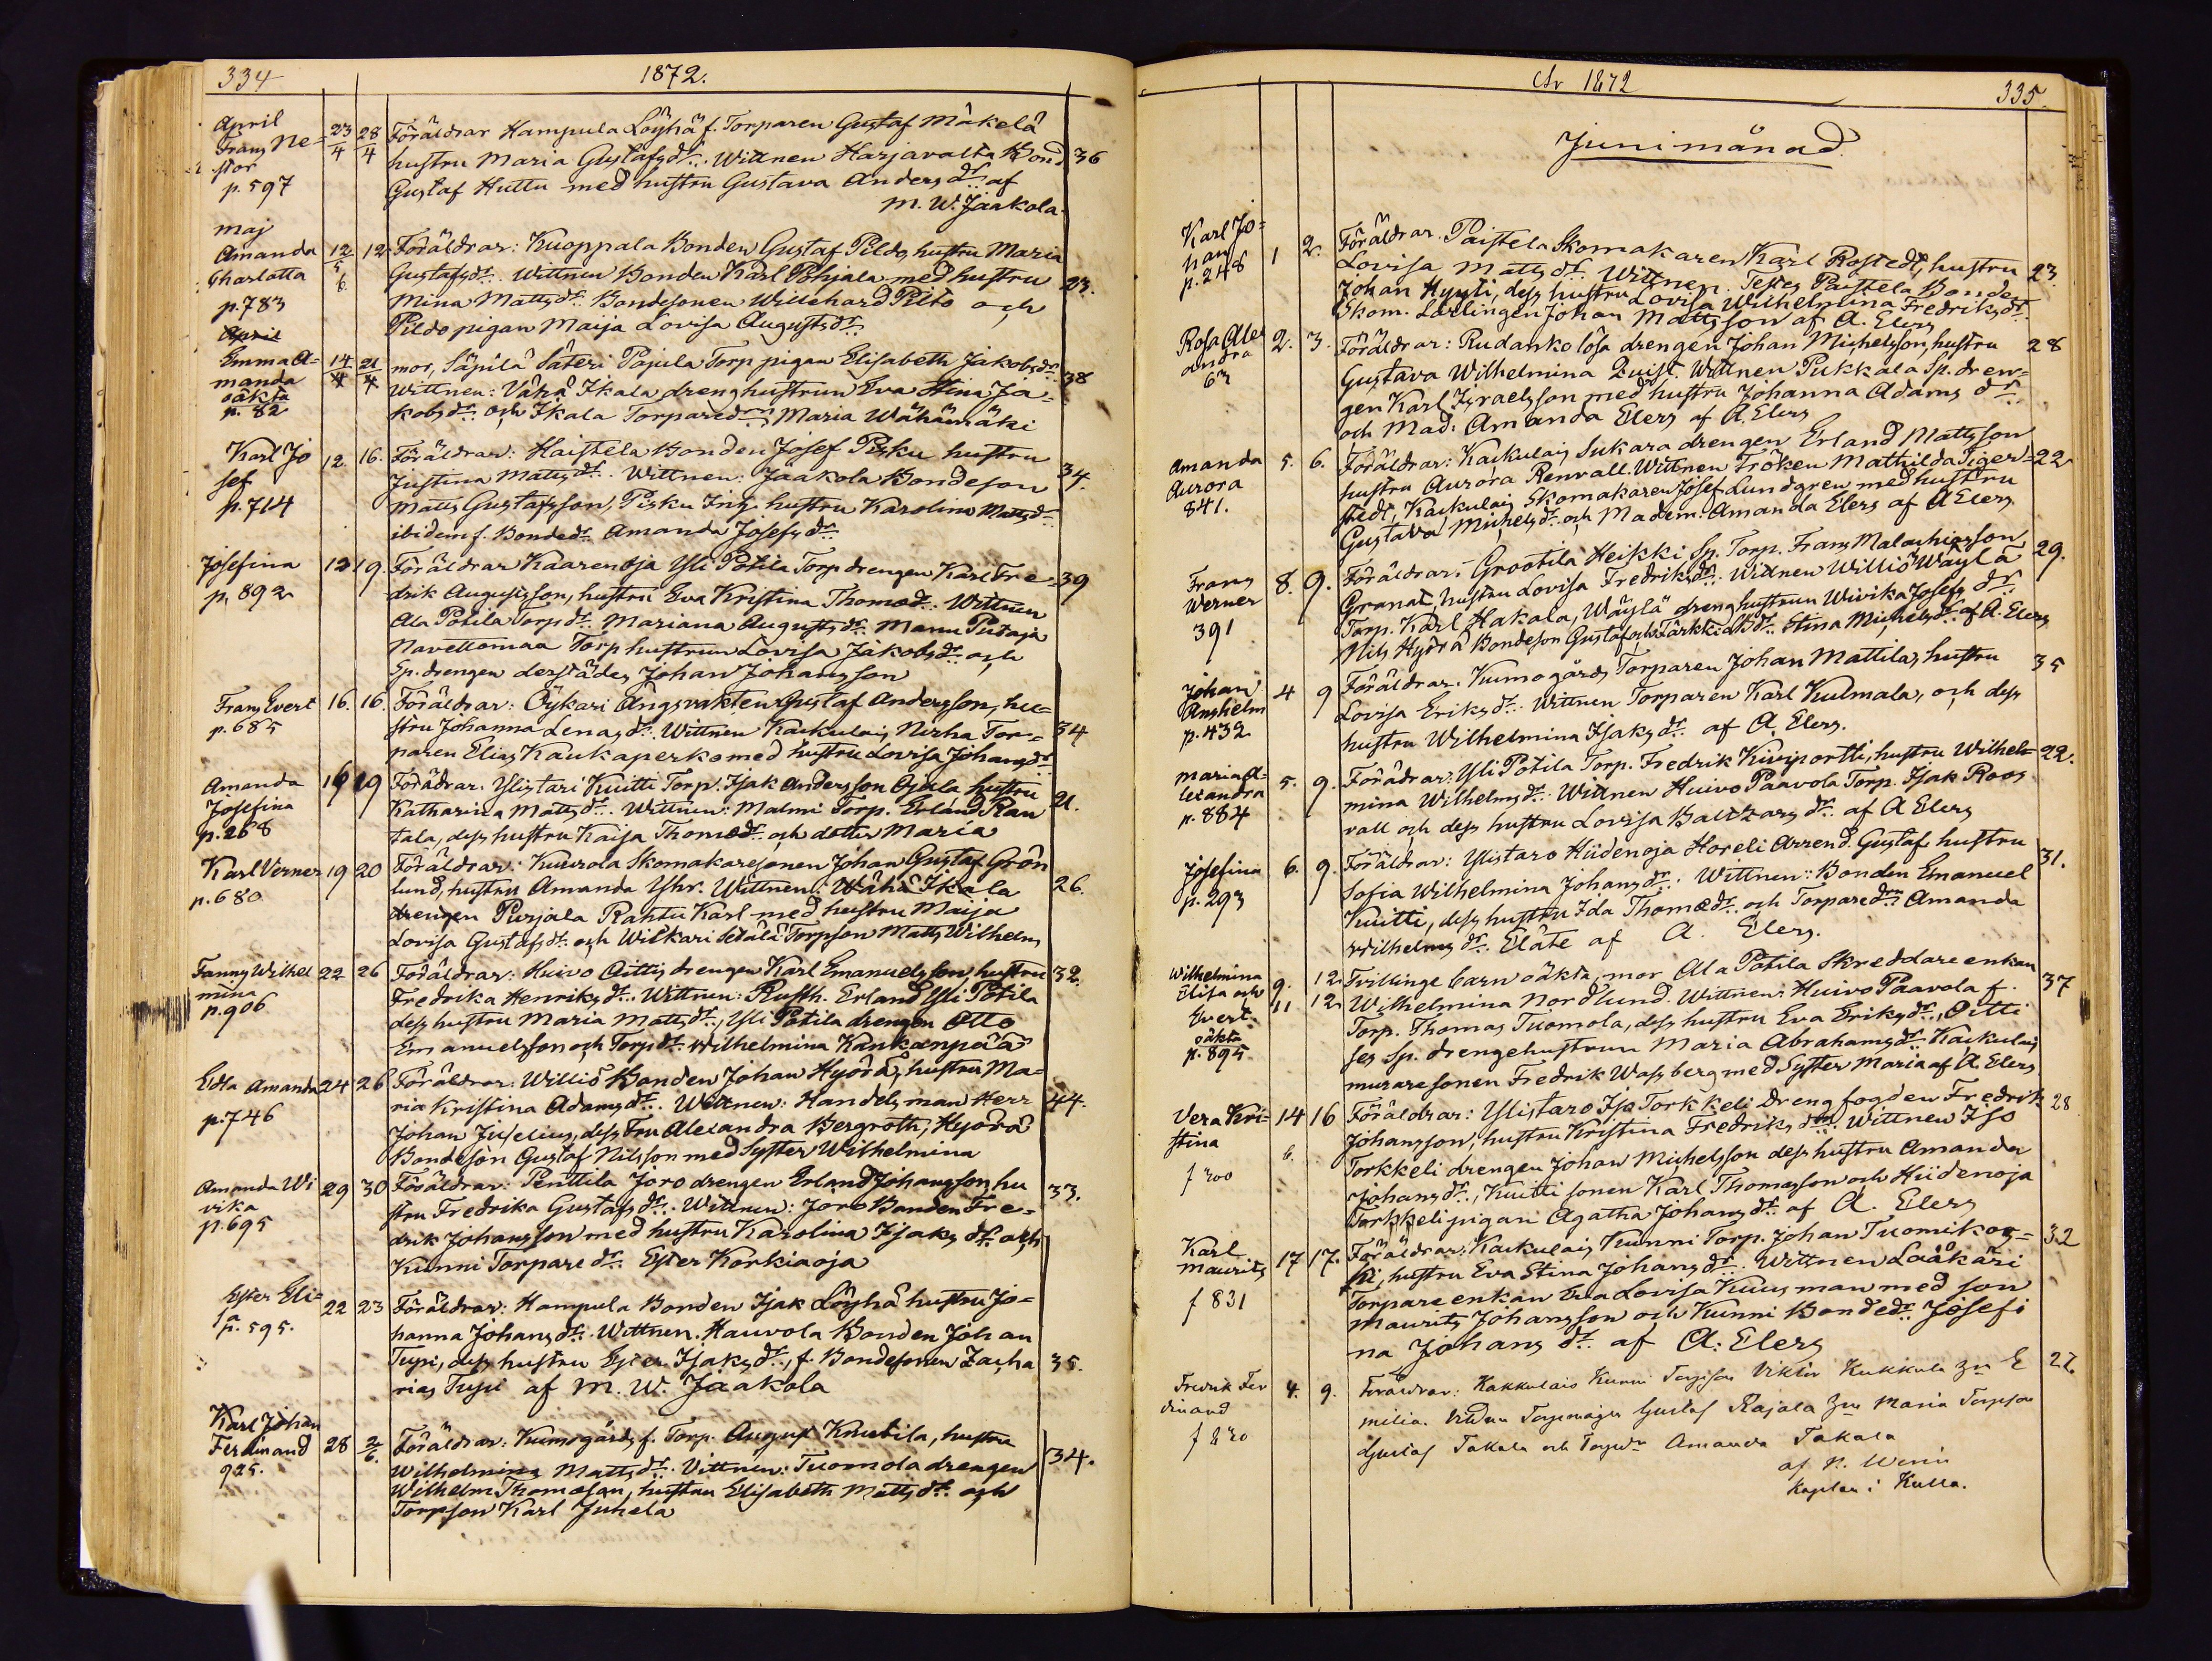 334
1872.
April
Frans Ne=
stor
p. 597
23/4 28/4
Föräldrar Kampula Löyhä f. Torparen Gustaf Mäkelä
hustru Maria Gustafsdr. Wittnen Harjavalta Bond 36
Gustaf Huttu med hustru Gustava Andersdr. af
M. W. Jaakola.
maj
Amanda
Charlotta
p. 783
12/5 12
6.
Föräldrar: Kuoppala Bonden Gustaf Pildo, hustru Maria
Gustafsdr. Wittnen Bonden Karl Pohjala med hustru 23.
Mina Mattsdr. Bondesonen Willehard Pilto och
Pildo pigan Maija Lovisa Augustsdr.
April
Emma A=
manda
oäkta
p. 82
14/4 21/4
mor, Säpilä Säteri Pajula Torp pigan Elisabeth Jakobsdr.
Wittnen: Vähä Ikala dreng hustrun Eva Stina Ja= 38
kobsdr. och Ikala Torparedr. Maria Wähämäki
Karl Jo
sef
p. 714
12. 16.
Föräldrar: Haistela Bonden Josef Pisku hustru
Justina Mattsdr. Wittnen: Jaakola Bondeson 34.
Matts Gustafsson, Pisku Inh. hustru Karolina Mattsdr.
ibidem f. Bondedr. Amanda Josefsdr.
Josefina
p. 892
12 19.
Föräldrar Kaarenoja Yli Potila Torp drengen Karl Fre= 39
drik Augustsson, hustru Eva Kristina Thomædr. Wittnen
Ala Potila Torpdr. Mariana Augustsdr. Manu Putaja
Navettomaa Torp hustrun Lovisa Jakobsdr. och
Sp. drengen derstädes Johan Johansson
Frans Evert
p. 685
16. 16.
Föräldrar: Öykäri Ängsvakten Gustaf Andersson, hu=
stru Johanna Lenasdr. Wittnen Kaukulais Nirha Tor= 34
paren Elias Kaukaperko med hustru Lovisa Johansdr.
Amanda
Josefina
p. 268
16 19
Förädrar. Ylistari Kuitti Torp. Isak Andersson Ojala hustru
Katharina Mattsdr. Wittnen: Malmi Torp. Erland Ran 21.
tala, dess hustru Kaisa Thomædr. och dotter Maria
Karl Verner
p. 680
19 20
Föräldrar: Kuurola Skomakaresonen Johan Gustaf Grön
lund, hustru Amanda Yhr. Wittnen: Wähä Ikala 26.
drengen Purjala Rahtu Karl med hustru Maija
Lovisa Gustafsdr. och Wilkari Setälä Torpson Matts Wilhelm
Fanny Wilhel
mina
p. 906
22 26
Föräldrar: Huivo Aittis drengen Karl Emanuelsson, hustru 32.
Fredrika Henriksdr. Wittnen: Rusth. Erland Yli Potila
dess hustru Maria Mattsdr., Yli Potila drengen Otto
Emanuelsson och Torpdr. Wilhelmina Kankaanpää
Edla Amanda
p. 746
24 26
Föräldrar: Williö Bonden Johan Hyörä, hustru Ma=
ria Kristina Adamsdr. Wittnen: Handelsman Herr 44.
Johan Juselius, dess Fru Alexandra Bergroth, Hyörä
Bondeson Gustaf Nilsson med Syster Wilhelmina
Amanda Wi
vika
p. 695
29 30
Föräldrar: Penttila Joro drengen Erland Johansson, hu 33.
stru Fredrika Gustafsdr. Wittnen: Joro Bonden Fre=
drik Johansson med hustru Karolina Isaksdr. och
Kunni Torparedr. Ester Korkiaoja
Ester Eli=
sa
p. 595.
22 23
Föräldrar: Kampula Bonden Isak Löyhä hustru Jo=
hanna Johansdr. Wittnen. Kauvola Bonden Johan
Tupi, dess hustru Ester Isaksdr., f. Bondesonen Zacha 35.
rias Tupi af M. W. Jaakola
Karl Johan
Ferdinand
925.
28 2/6.
Föräldrar: Kumogårds f. Torp. August Knuutila, hustru
Wilhelmina Mattsdr. Vittnen: Tuomola drengen 34.
Wilhelm Thomasson, hustru Elisabeth Mattsdr. och
Torpson Karl Juhela
År 1872
335.
Junimånad
Karl Jo=
han
p. 248
1 2.
Föräldrar. Paistela Skomakaren Karl Rostedt, hustru
Lovisa Mattsdr. Wittnen. Testes Paistela Bonde 23.
Johan Hyyti, dess hustru Lovisa Wilhelmina Fredriksdr.
Skom. Lärlingen Johan Mattsson af A. Elers
Rosa Alex
andra
63
2. 3.
Föräldrar: Rudanko lösa drengen Johan Michelsson, hustru 28
Gustava Wilhelmina Quist. Wittnen Pukkala Sp. dren=
gen Karl Israelsson med hustru Johanna Adamsdr.
och Mad: Amanda Elers af A. Elers
Amanda
Aurora
841.
5. 6.
Föräldrar: Kaukulais Sukara drengen Erland Mattsson
hustru Aurora Renvall. Wittnen Fröken Mathilda Tiger= 22
stedt, Kaukulais Skomakaren Josef Lundgren med hustru
Gustava Michelsdr. och Madem: Amanda Elers af A Elers
Frans
Werner
391
8. 9.
Föräldrar: Grootila Heikki Sp. Torp. Frans Malachiasson 29.
Granat, hustru Lovisa Fredriksdr. Wittnen Williö Wäylä
Torp. Karl Hakala, Wäylä drenghustrun Wivika Josefsdr.
Nils Hyörä Bondeson Gustaf och Tarkki Bdr. Stina Michelsdr. af A. Elers
Johan
Anshelm
p. 432
4 9
Föräldrar. Kumogårds Torparen Johan Mattila, hustru 35
Lovisa Eriksdr. Wittnen Torparen Karl Kulmala, och dess
hustru Wilhelmina Isaksdr. af A. Elers.
Maria A=
lexandra
p. 884
5. 9.
Förädrar: Yli Potila Torp. Fredrik Kiviportti, hustru Wilhel= 22.
mina Wilhelmsdr. Wittnen Huivo Paavola Torp. Isak Roos
vall och dess hustru Lovisa Baltzarsdr. af A Elers
Josefina
p. 293
6. 9.
Föräldrar: Ylistaro Hiidenoja Horeli Arrend. Gustaf hustru
Sofia Wilhelmina Johansdr. Wittnen: Bonden Emanuel 31.
Kuitti, dess hustru Ida Thomædr. och Torparedrn Amanda
Wilhelmsdr. Eläte af A. Elers.
Wilhelmina
Elisa och
Evert
oäkta
p. 895
9. 12
11 12
Tvillinge barn oäkta, mor Ala Potila Skreddare enkan
Wilhelmina Nordlund. Wittnen: Huivo Paavola f. 37
Torp. Thomas Tuomola, dess hustru Eva Eriksdr., Oitti
ses Sp. drengehustrun Maria Abrahamsdr. Kaukulais
muraresonen Fredrik Wassberg med Syster Maria af A. Elers
Vera Kri=
stina
f 200
14 16
6.
Föräldrar: Ylistaro Iso Torkkeli Drengfogden Fredrik 28
Johansson, hustru Kristina Fredriksdr. Wittnen Iso
Torkkeli drengen Johan Michelsson dess hustru Amanda
Johansdr., Kuitti sonen Karl Thomasson och Hiidenoja
Torkkeli pigan Agatha Johansdr. af A. Elers
Karl
Maurits
f 831
17 17.
Föräldrar: Kaukulais Kunni Torp. Johan Tuomikos= 32
ki, hustru Eva Stina Johansdr. Wittnen Lääkäri
Torpare enkan Eva Lovisa Kuusman med son
Maurits Johansson och Kunni Bondedr. Josefi
na Johansdr. af A. Elers
Fredrik Fer
dinand
f 820
4. 9.
Föräldrar: Kakkulais Kunni Torpson Viktor Kukkula E 22
milia. Torpmågen Gustaf Rajala Maria Torpson
Gustaf Takala och Torpdr Amanda Takala
af N.
Kaplan i Kulla.